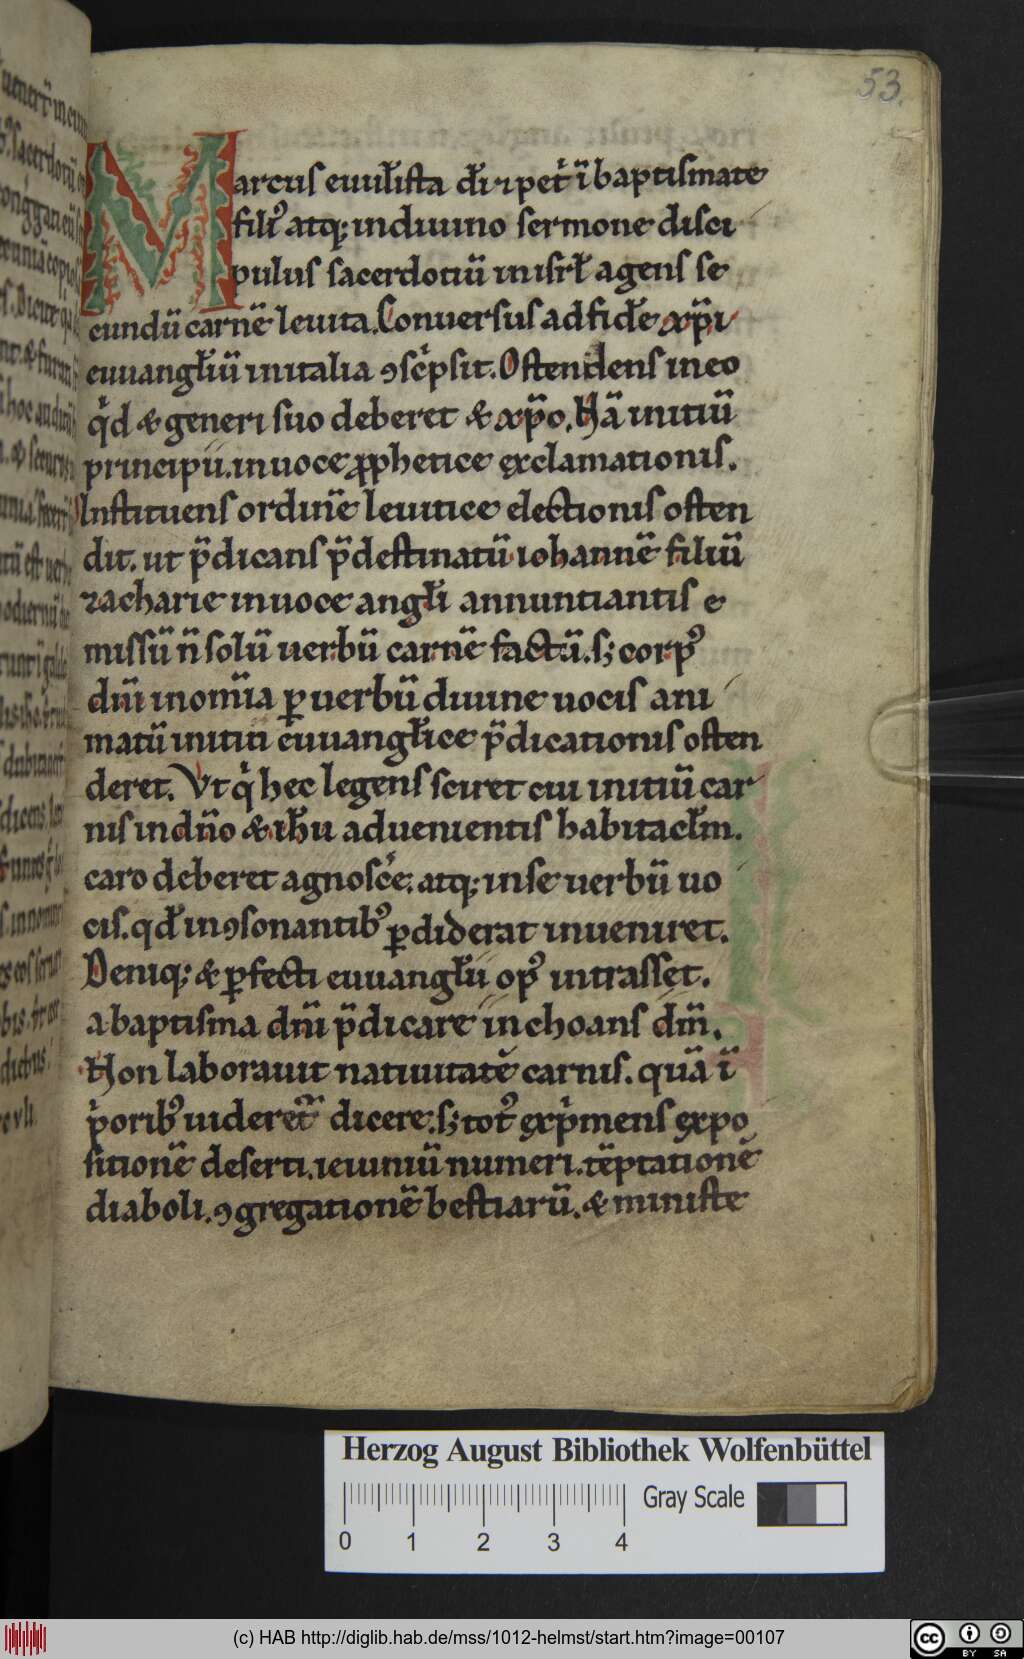 53.
Marcus euuḡlista d̄i ⁊ pet̓ ī baptismate
fili᷒ atq; in diuino sermone disci
pulus sacerdotiū in isrł agens se
cundū carnē leuita. Conuersus ad fidē xp̄i
euuangłiū in italia ꝯsc̓psit. Ostendens in eo
q̓d & generi suo deberet & xp̄o. Nā initiū
principii. in uoce ꝓphetice exclamationis.
Instituens ordinē leuitice electionis osten
dit. ut p̄dicans p̄destinatū iohannē filiū
zacharie in uoce angłi annuntiantis e
missū n̄ solū uerbū carnē factū. sꝫ corp᷒
dn̄i in om̄ia ꝑ uerbū diuine uocis ani
matū initiū euuangłice p̄dicationis osten
deret. Vt q̓ hec legens sciret cui initiū car
nis in dn̄o & ihū aduenientis habitacłm.
caro deberet agnosce᷒. atq; in se uerbū uo
cis. qđ in ꝯsonantib᷒ ꝑdiderat inueniret.
Deniq; & ꝑfecti euuangłii op᷒ intrasset.
a baptisma dn̄i p̄dicare inchoans dn̄m.
Non laborauit natiuitatē carnis. quā ī
p̓orib᷒ uideret᷑ dicere. sꝫ tot᷒ exp̓mens expo
sitionē deserti. ieiuniū numeri. tēptationē
diaboli. ꝯgregationē bestiarū. & ministe
Herzog August Bibliothek Wolfenbüttel
Gray Scale
0 1 2 3 4
(c) HAB http://diglib.hab.de/mss/1012-helmst/start.htm?image=00107
cc BY SA